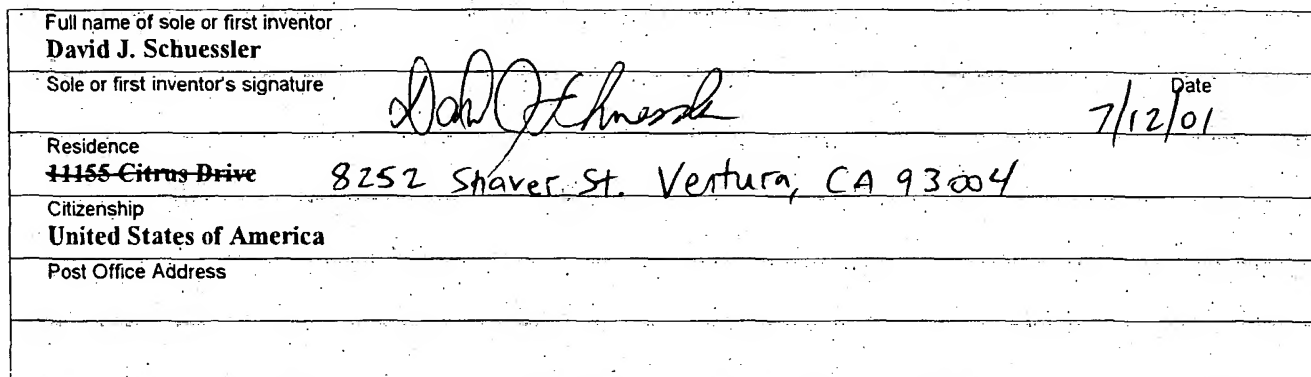 Full name of sole or first inventor
David J. Schuessler
Sole or first inventor's signature
Date
7/12/01
Residence
11155 Citrus Drive 8252 Shaver St. Ventura, CA 93004
Citizenship
United States of America
Post Office Address